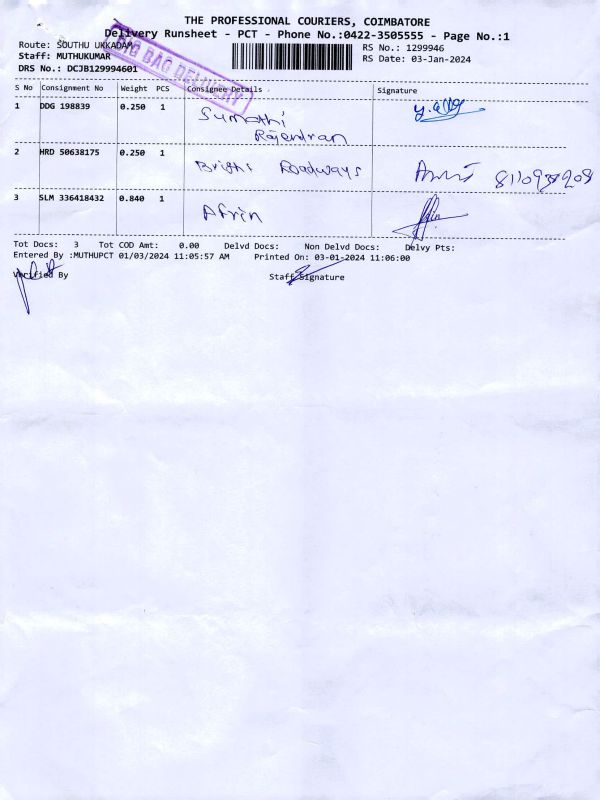 THE PROFESSIONAL COURIERS, COIMBATORE
Delivery Runsheet - PCT - Phone No.:0422-3505555 - Page No.:1
Route: SOUTHU UKKADAM
RS No.: 1299946
Staff: MUTHUKUMAR
RS Date: 03-Jan-2024
DRS No.: DCJB129994601
BAG DELIVERY
S No Consignment No Weight PCS Consignee Details Signature
1 DDG 198839 0.250 1 Sumathi
Rajendran
2 HRD 50638175 0.250 1 Roadways
3 SLM 336418432 0.840 1 Afrin
Tot Docs: 3 Tot COD Amt: 0.00 Delvd Docs: Non Delvd Docs: Delvy Pts:
Entered By :MUTHUPCT 01/03/2024 11:05:57 AM Printed On: 03-01-2024 11:06:00
Verified By Staff Signature